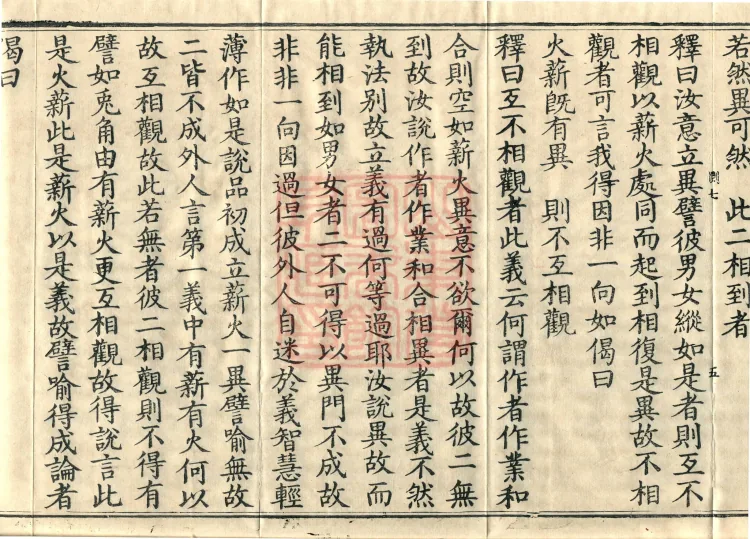 若然異可然　此二相到者
釋曰汝意立異譬彼男女縱如是者則互不
相觀以薪火處同而起到相復是異故不相
觀者可言我得因非一向如偈曰
火薪既有異　則不互相觀
釋曰互不相觀者此義云何謂作者作業和
合則空如薪火異意不欲爾何以故彼二無
到故汝說作者作業和合相異者是義不然
執法別故立義有過何等過耶汝說異故而
能相到如男女者二不可得以異門不成故
非非一向因過但彼外人自迷於義智慧輕
薄作如是說品初成立薪火一異譬喻無故
二皆不成外人言第一義中有薪有火何以
故互相觀故此若無者彼二相觀則不得有
譬如兎角由有薪火更互相觀故得說言此
是火薪此是薪火以是義故譬喻得成論者
偈曰
七
五